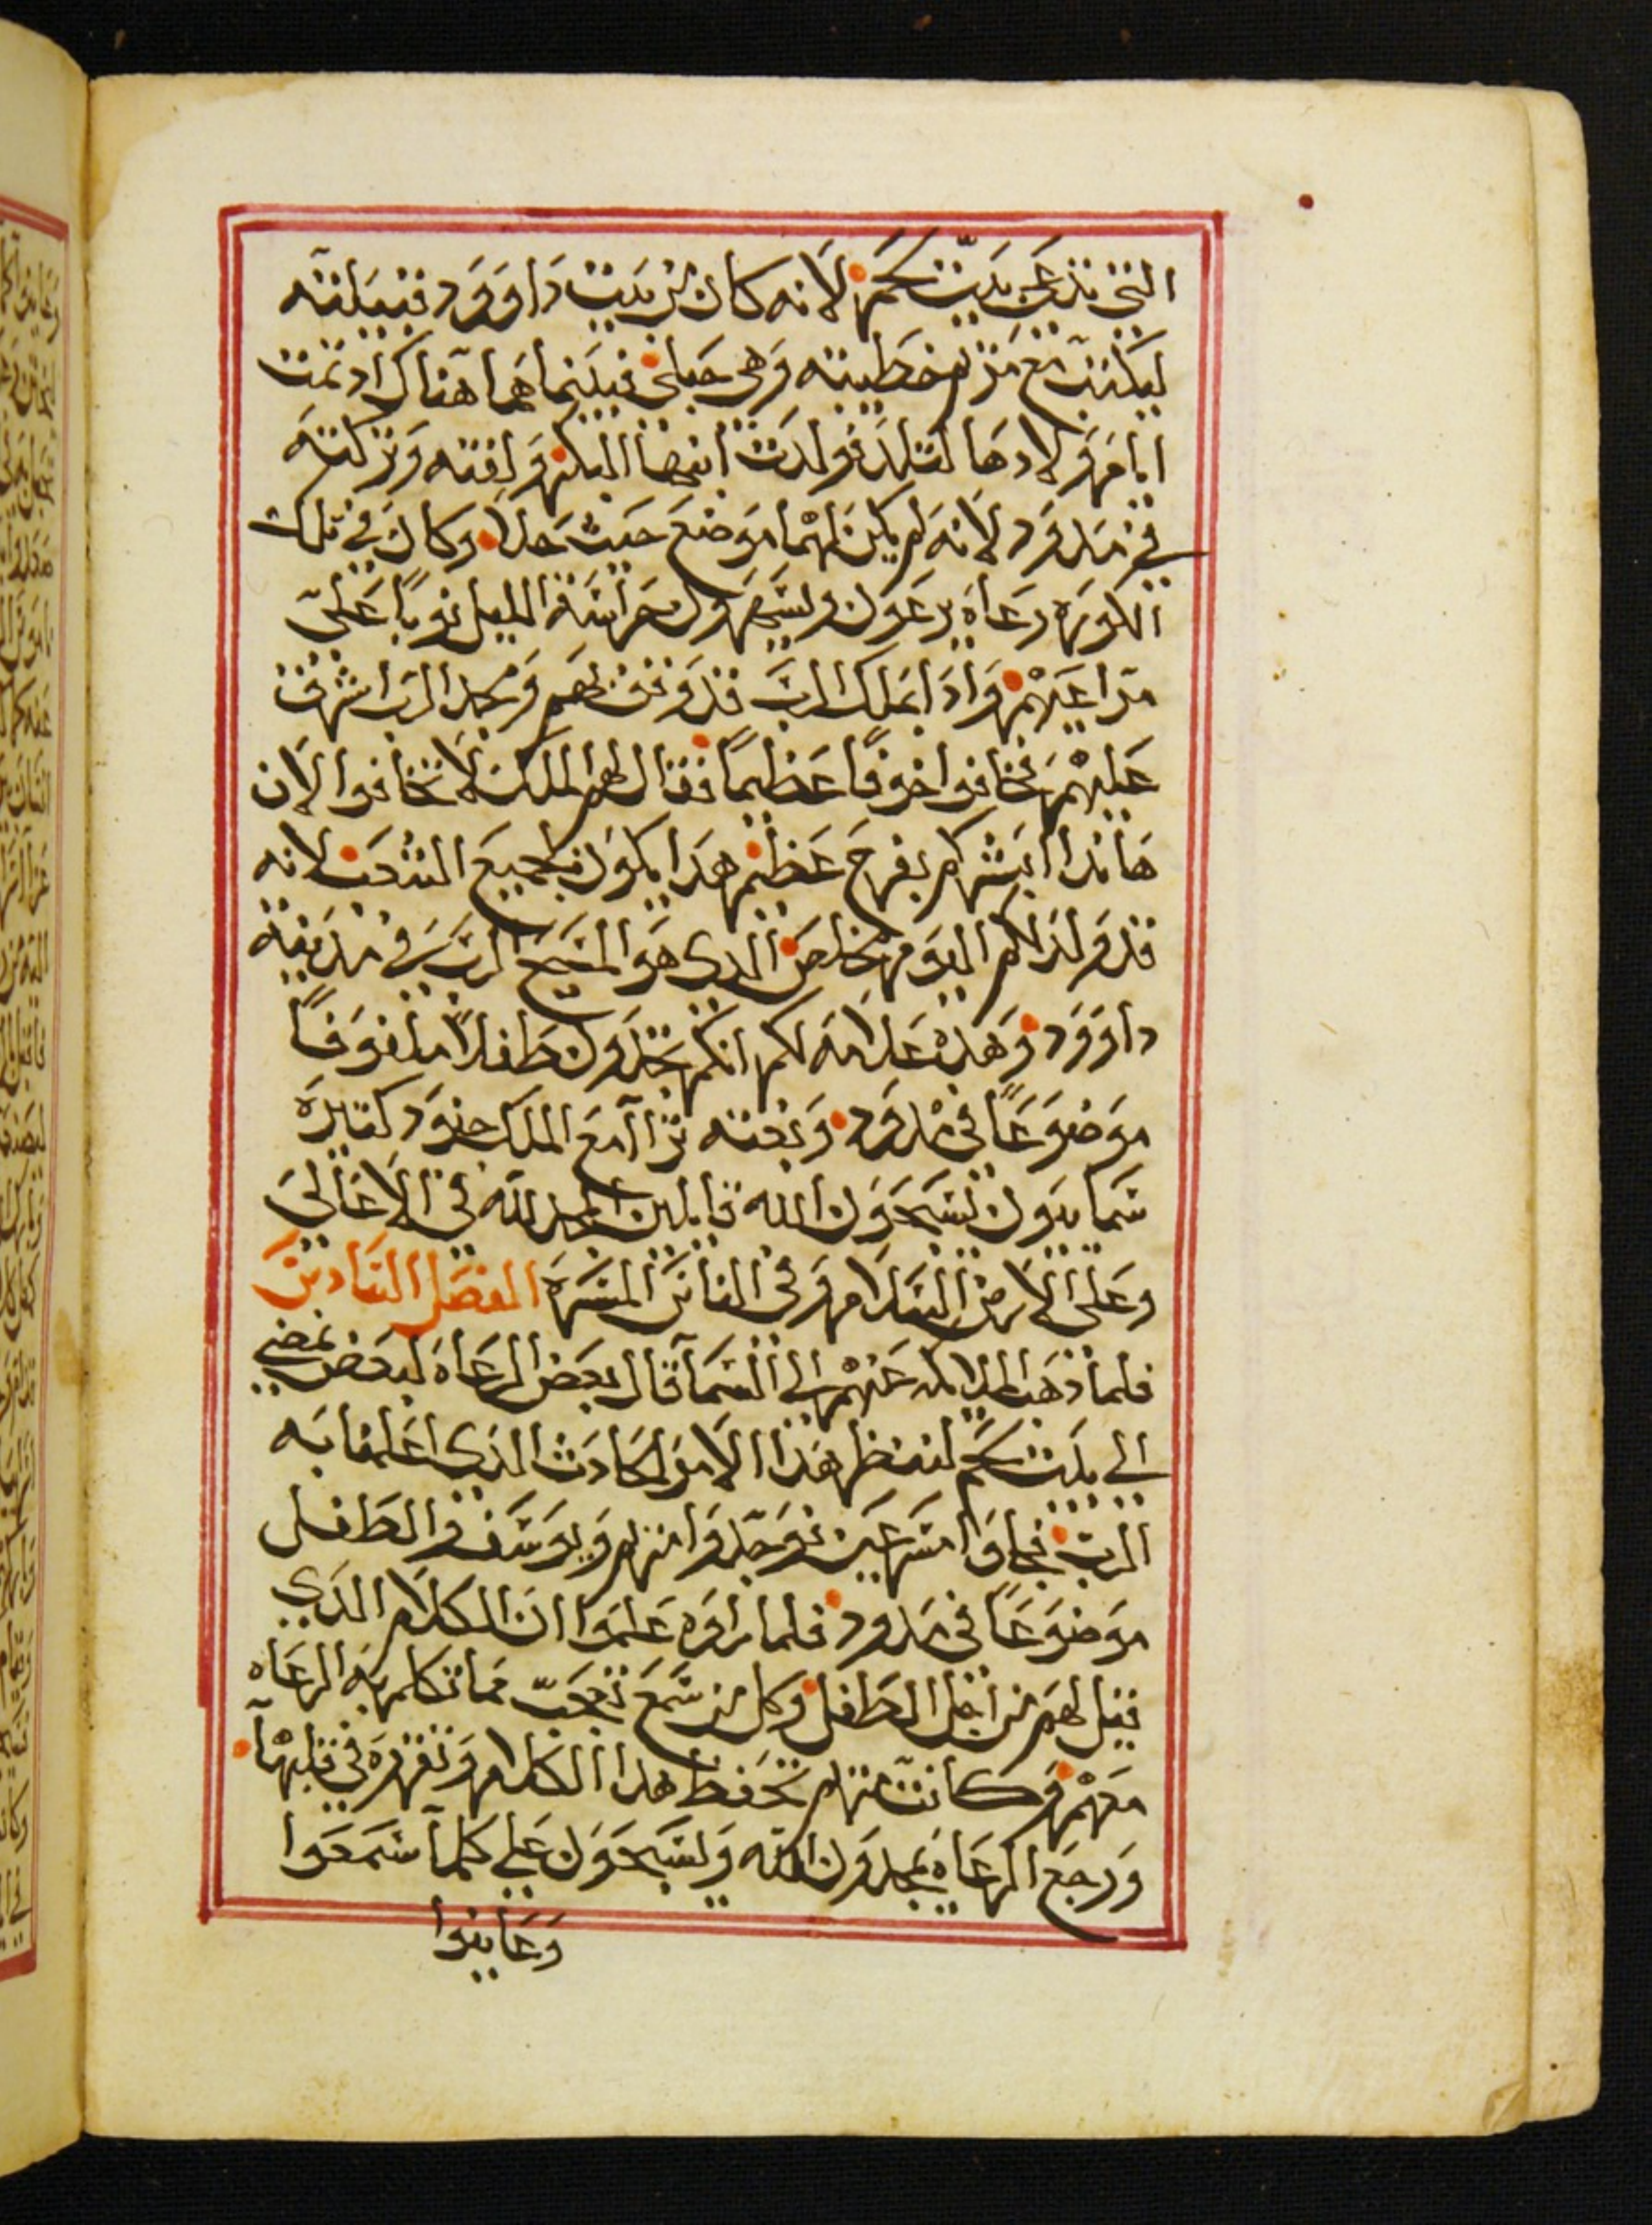 التي تدعي بيت لحم لانه كان من بيت داوود وقبيلته
ليكتتب مع مريم خطيبته وهي حبلي فبينما هما هناك اد تمت
ايام ولادها لتلد فولدت ابنها البكر ولفته وتركته
في مدود لانه لم يكن لهما موضع حيث حلا وكان في تلك
الكوره رعاه يرعون ويسهرون حراسة الليل نوبا علي
مراعيهم وادا بملك الرب قد وقف بهم ومجد الرب اشرف
عليهم فخافوا خوفا عظيما فقال لهم الملك لا تخافوا لان
هاندا ابشركم بفرح عظيم هدا يكون لجميع الشعب لانه
قد ولد لكم اليوم مخلص الدي هو المسيح الرب في مدينة
داوود وهده علامه لكم انكم تجدون طفلا ملفوفا
موضوعا في مدود وبغته ترآ مع الملك جنود كتيره
سماييون يسبحون الله قايلين المجد لله في الاعالي
وعلي الارض السلام وفي الناس المسره الفصل السادس
فلما دهب الملايكه عنهم الي السما قال بعض الرعاه لبعض نمضي
الي بيت لحم لننظر هدا الامر الحادث الدي اعلمنا به
الرب فجاوا مسرعين فوجدوا مريم ويوسف والطفل
موضوعا في مدود فلما راوه علموا ان الكلام الدي
قيل لهم من اجل الطفل وكل من سمع تعجب مما تكلم به الرعاه
معهم وكانت مريم تحفظ هدا الكلام وتقره في قلبها
ورجع الرعاه يمجدون الله ويسبحون علي كلما سمعوا
وعاينوا